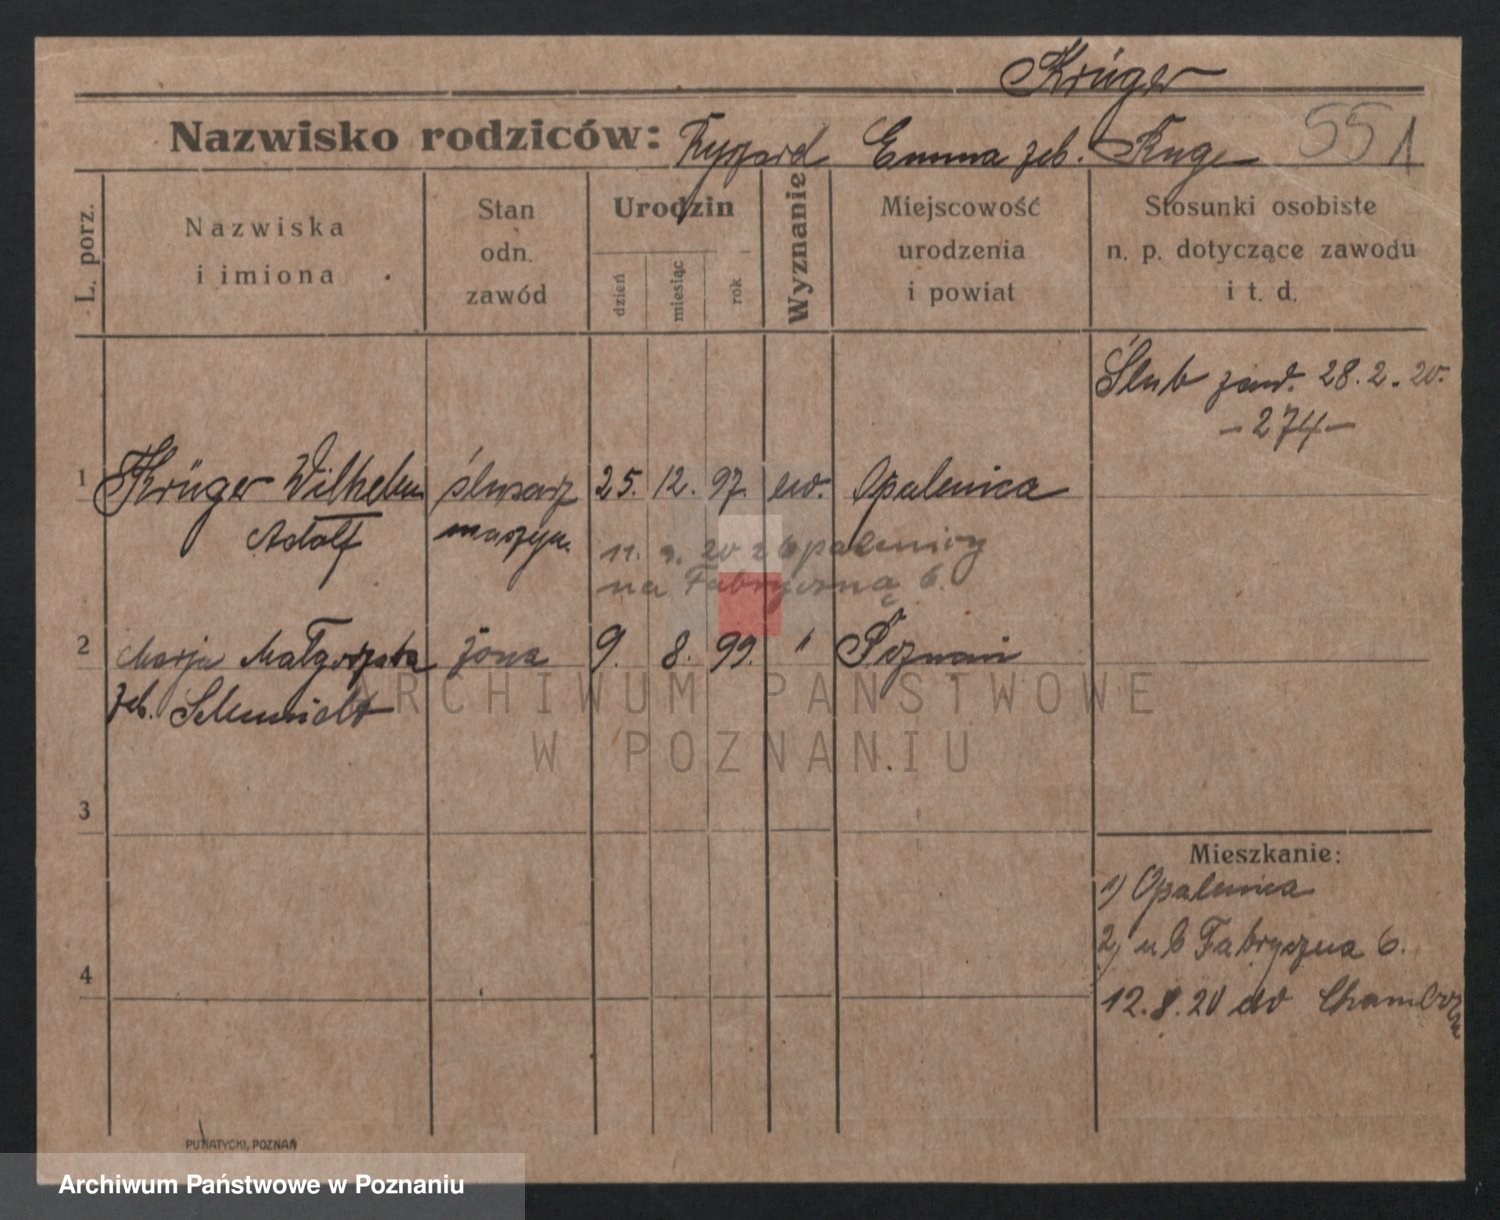 Krüger
Nazwisko rodziców: Ryszard Emma zeb. Kuge
551
L. porz.
Nazwiska
i imiona
Stan
odn.
zawód
Urodzin
dzień
miesiąc
rok
Wyznanie
Miejscowość
urodzenia
i powiat
Stosunki osobiste
n. p. dotyczące zawodu
i t. d.
Ślub zaw. 28.2.20.
- 274 -
1 Krüger Wilhelm ślusarz 25. 12. 97. ew. Opalenica
Adolf maszyn.
11. 9. 20 z Opalenicy
na Fabryczną 6.
2 Marja Małgorzata żona 9. 8. 99. " Poznań
zeb. Schmidt
ARCHIWUM PAŃSTWOWE
W POZNANIU
3
Mieszkanie:
1) Opalenica
2) ul Fabryczna 6.
4
12.8.20 do
PUWATYCKI, POZNAŃ
Archiwum Państwowe w Poznaniu